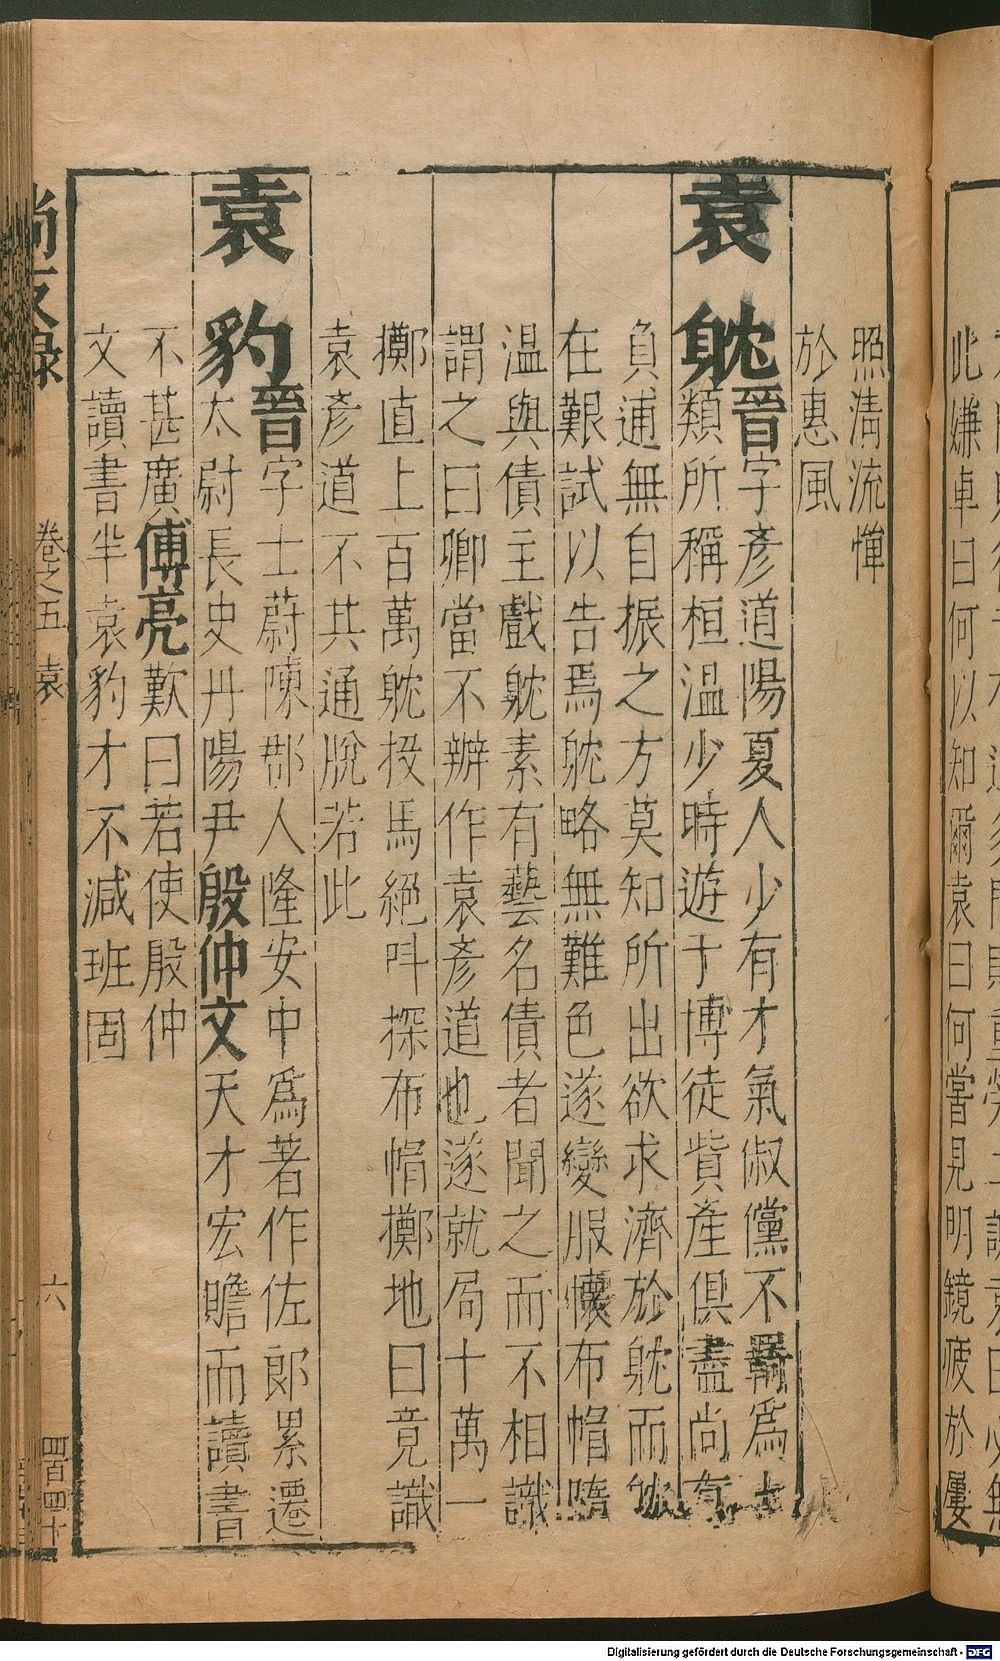 此嫌卓曰何以知爾袁曰何嘗見明鏡疲於屢
照清流憚
於惠風
袁躭晉字彥道陽夏人少有才氣俶儻不羈爲士
類所稱桓温少時遊于博徒貲產俱盡尚有
負逋無自振之方莫知所出欲求濟於躭而躭
在艱試以告焉躭略無難色遂變服懷布帽隨
温與債主戲躭素有藝名債者聞之而不相識
謂之曰卿當不辦作袁彥道也遂就局十萬一
擲直上百萬躭投馬絕呌探布帽擲地曰竟識
袁彥道不其通脫若此
袁豹晉字士蔚陳郡人隆安中爲著作佐郎累遷
太尉長史丹陽尹殷仲文天才宏贍而讀書
不甚廣傅亮歎曰若使殷仲
文讀書半袁豹才不減班固
尚友錄 卷之五 袁 六 四百四十
Digitalisierung gefördert durch die Deutsche Forschungsgemeinschaft - DFG